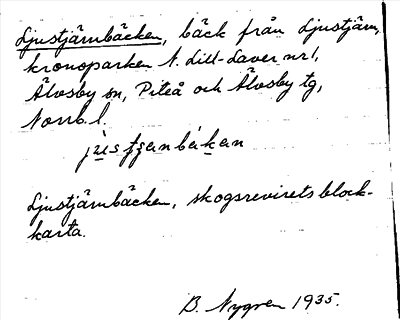 Ljustjärnbäcken, bäck från Ljustjärn,
kronoparken N. Lill-Laver nr 1,
Älvsby sn, Piteå och Älvsby tg,
Norrb. l.
Ljustjärnbäcken, skogsrevirets block-
karta.
B. Nygren 1935.